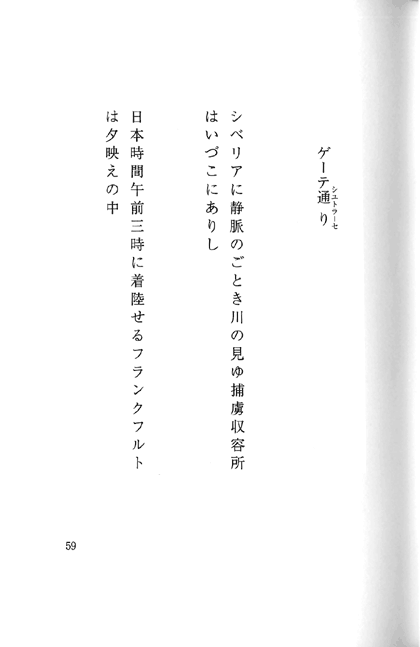 ゲーテ通り
シュトラーセ
シベリアに静脈のごとき川の見ゆ捕虜収容所
はいづこにありし
日本時間午前三時に着陸せるフランクフルト
は夕映えの中
59